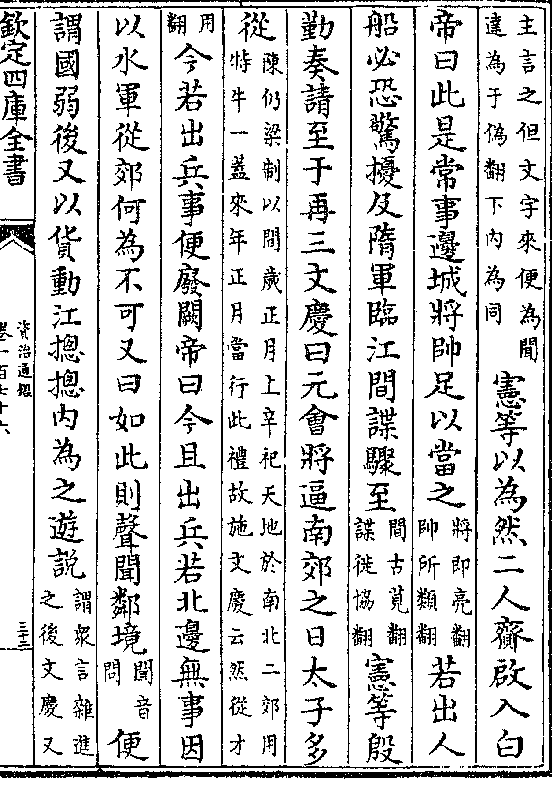 主言之但文字來便為聞
達為于偽翻下内為同
憲等以為然二人齎啟入白
帝曰此是常事邊城將帥足以當之
將即亮翻
帥所類翻
若出人
船必恐驚擾及隋軍臨江間諜驟至
間古莧翻
諜徒協翻
憲等殷
勤奏請至于再三文慶曰元會將逼南郊之日太子多
從
陳仍梁制以間歲正月上辛祀天地於南北二郊用
特牛一蓋來年正月當行此禮故施文慶云然從才
用
翻
今若出兵事便廢闕帝曰今且出兵若北邊無事因
以水軍從郊何為不可又曰如此則聲聞鄰境
聞音
問
便
謂國弱後又以貨動江摠摠内為之遊說
謂衆言雜進
之後文慶又
欽定四庫全書
資治通鑑
卷一百七十六
三十三